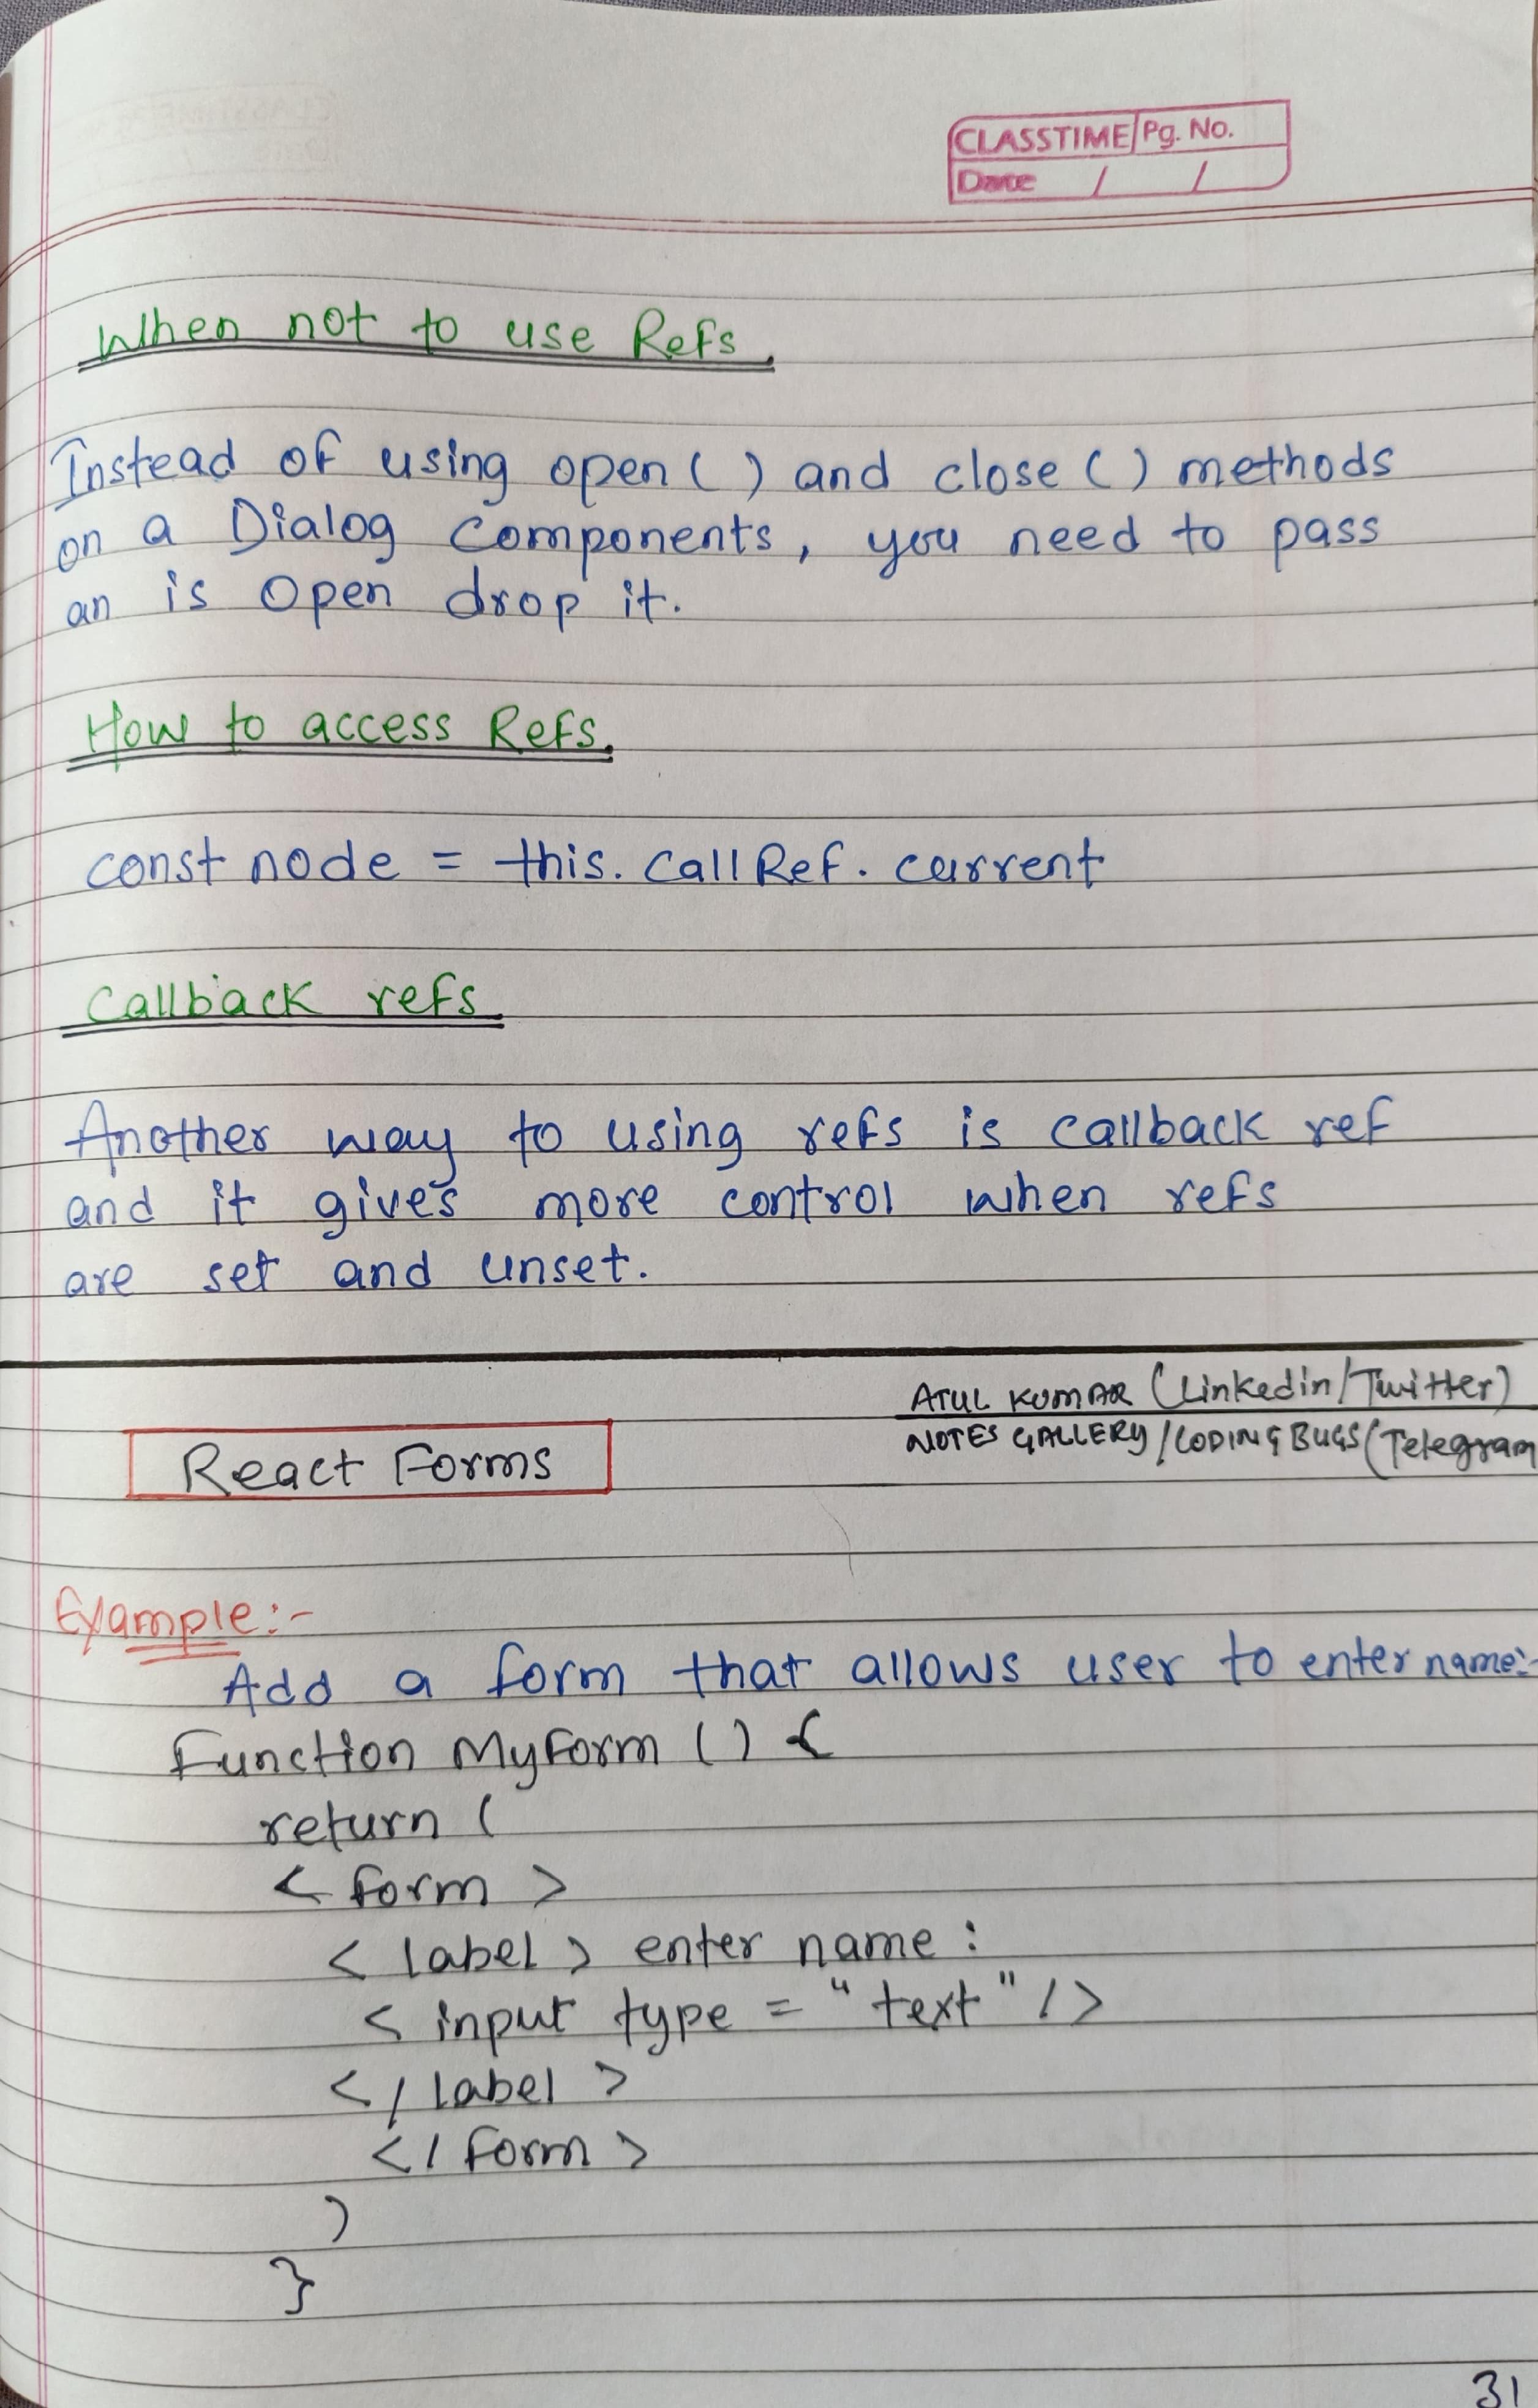 CLASSTIME Pg. No.
Date / /
When not to use Refs.
Instead of using open () and close () methods
on a Dialog Components, you need to pass
an is Open drop it.
How to access Refs.
const node = this. Call Ref. current
Callback refs
Another way to using refs is callback ref
and it gives more control when refs
are set and unset.
ATUL KUMAR (Linkedin/Twitter)
NOTES GALLERY / CODING BUGS (Telegram
React Forms
Example:-
Add a form that allows user to enter name:-
Function MyForm () {
return (
< form >
< label > enter name :
< input type = "text" />
</ label >
</ form >
)
}
31